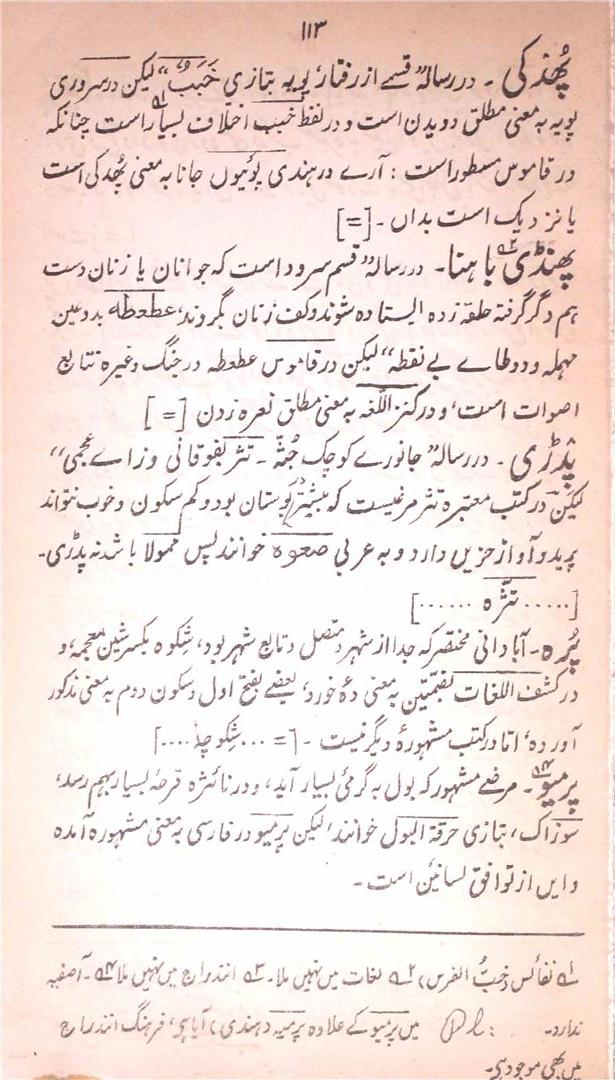 ۱۱۳
پُھدکی ۔ در رسالہ "قسمے از رفتار، پویہ بتازی خَبَبْ" لیکن در سروری
پویہ بہ معنی مطلق دویدن است و در لفظ خبب اختلاف بسیار است چنانکہ
در قاموس مسطور است : آرے در ہندی پوئیوں جانا بہ معنی پُھدکی است
یا نزدیک است بداں ۔ [=]
پھنڈی باہنا ۔ در رسالہ "قسم سرود است کہ جوانان یا زنان دست
ہم دگر گرفتہ حلقہ زدہ ایستادہ شوند و کف زنان بگردند، عطعطہ بدو عین
مہملہ و دو طاے بے نقطہ" لیکن در قاموس عطعطہ در جنگ وغیرہ تتابع
اصوات است، و در کنز اللغہ بہ معنی مطلق نعرہ زدن [=]
پڈڑی ۔ در رسالہ "جانورے کوچک جُثّہ ۔ تنز بفوقانی و زاے عجمی"
لیکن در کتب معتبرہ تنز مرغیست کہ بیشتر در بوستان بود و کم سکون و خوب نتواند
پرید و آواز حزیں دارد و بہ عربی صعوہ خوانند پس ممولا باشد نہ پڈڑی۔
[..... تنّژہ ......]
پُرہ ۔ آبادانی مختصر کہ جدا از شہر و متصل و تابع شہر بود، شِکوہ بکسر شین معجمہ، و
در کشف اللغات بضمتین بہ معنی دہ خورد، بعضے بفتح اول و سکون دوم بہ معنی مذکور
آوردہ، امّا در کتب مشہورہ دیگر نیست ۔ [= ... شکوچہ ....]
پرمیو ۔ مرضے مشہور کہ بول بہ گرمئ بسیار آید، و در نائژہ قرحہ بسیار بہم رسد،
سوزاک، بتازی حرقۃ البول خوانند، لیکن پرمیو در فارسی بہ معنی مشہورہ آمدہ
و ایں از توافق لسانین است ۔
۱؎ نفائس (خبُّ الفرس) ۲؎ لغات میں نہیں ملا۔ ۳؎ انندراج میں نہیں ملا ۴؎ ۔ آصفیہ
ندارد۔ : میں پرمیو کے علاوہ پرمیہ (ہندی) آیا ہی، فرہنگ انندراج
میں بھی موجود ہی۔